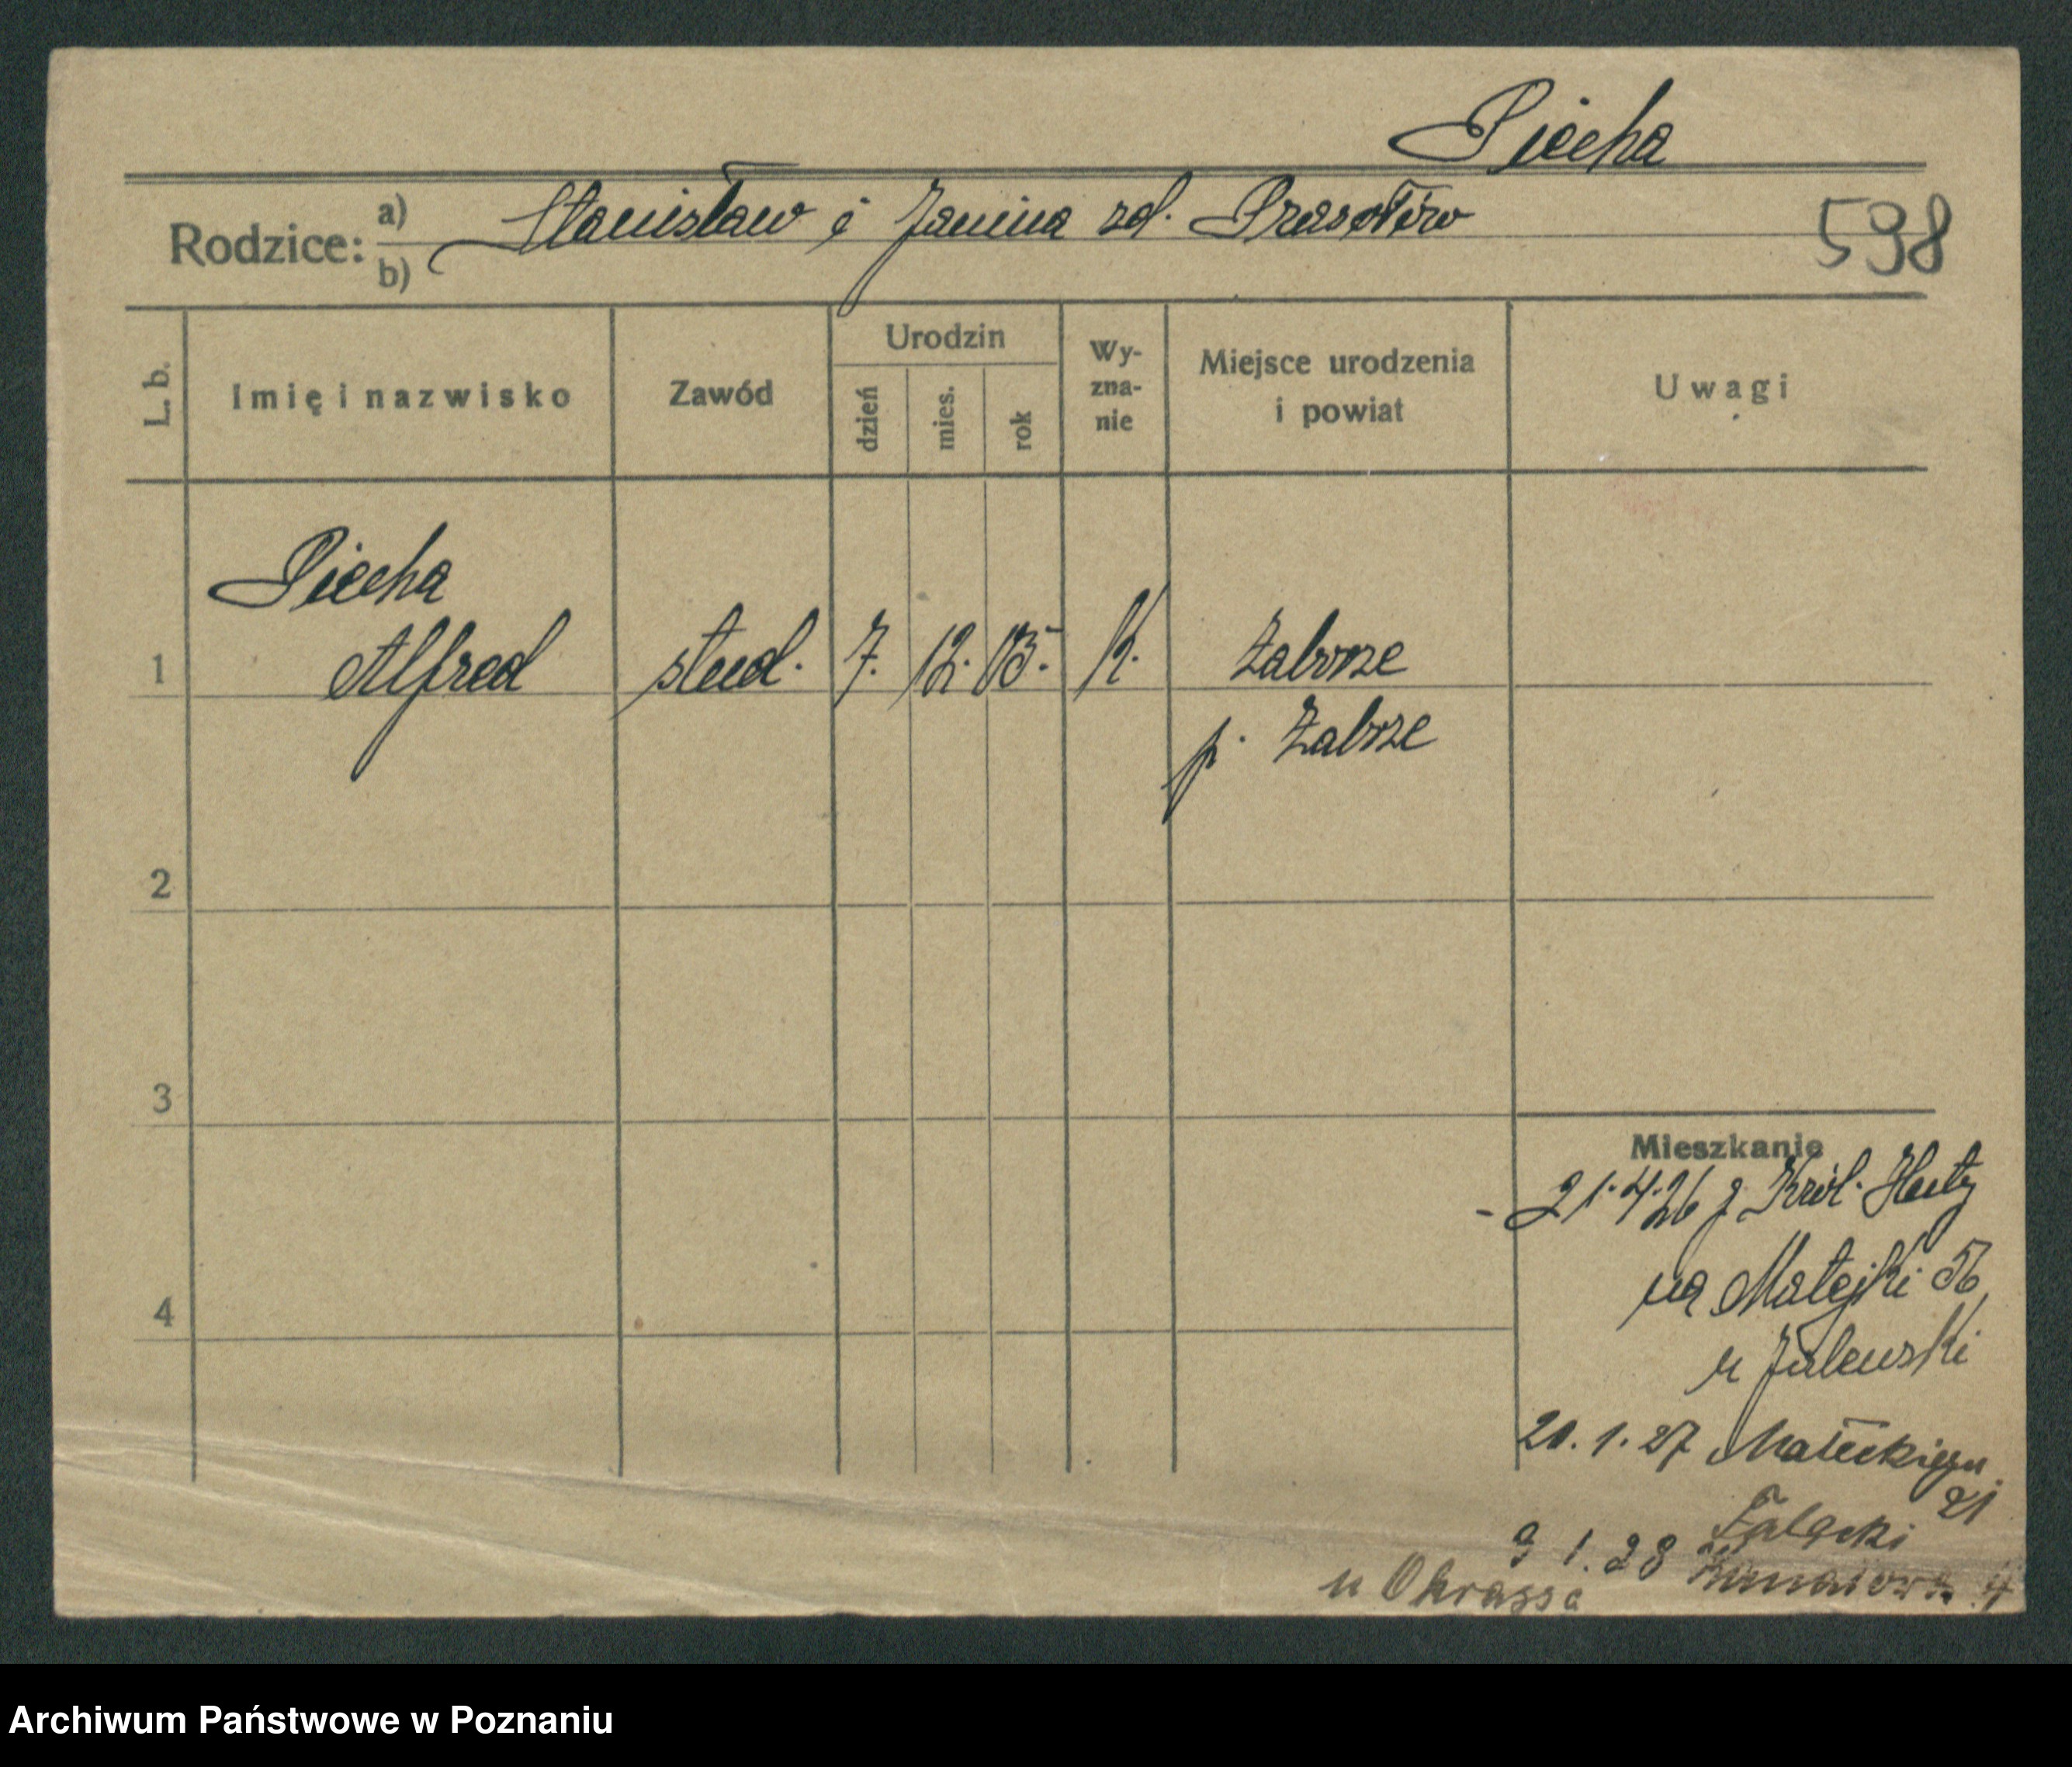 Piecha
Rodzice: a) Stanisław i Janina zd. Prasołów
b)
598
L. b.
Imię i nazwisko
Zawód
Urodzin
dzień
mies.
rok
Wy-
zna-
nie
Miejsce urodzenia
i powiat
Uwagi
Piecha
1 Alfred stud. 7. 12. 05. k. Zaborze
p. Zabrze
2
3
4
Mieszkanie
- 21.4.26 z Król. Huty
na Matejki 56
u
20. 1. 27 Małeckiego
21
Załącki
9 1. 28
u Okrassa 4
Archiwum Państwowe w Poznaniu